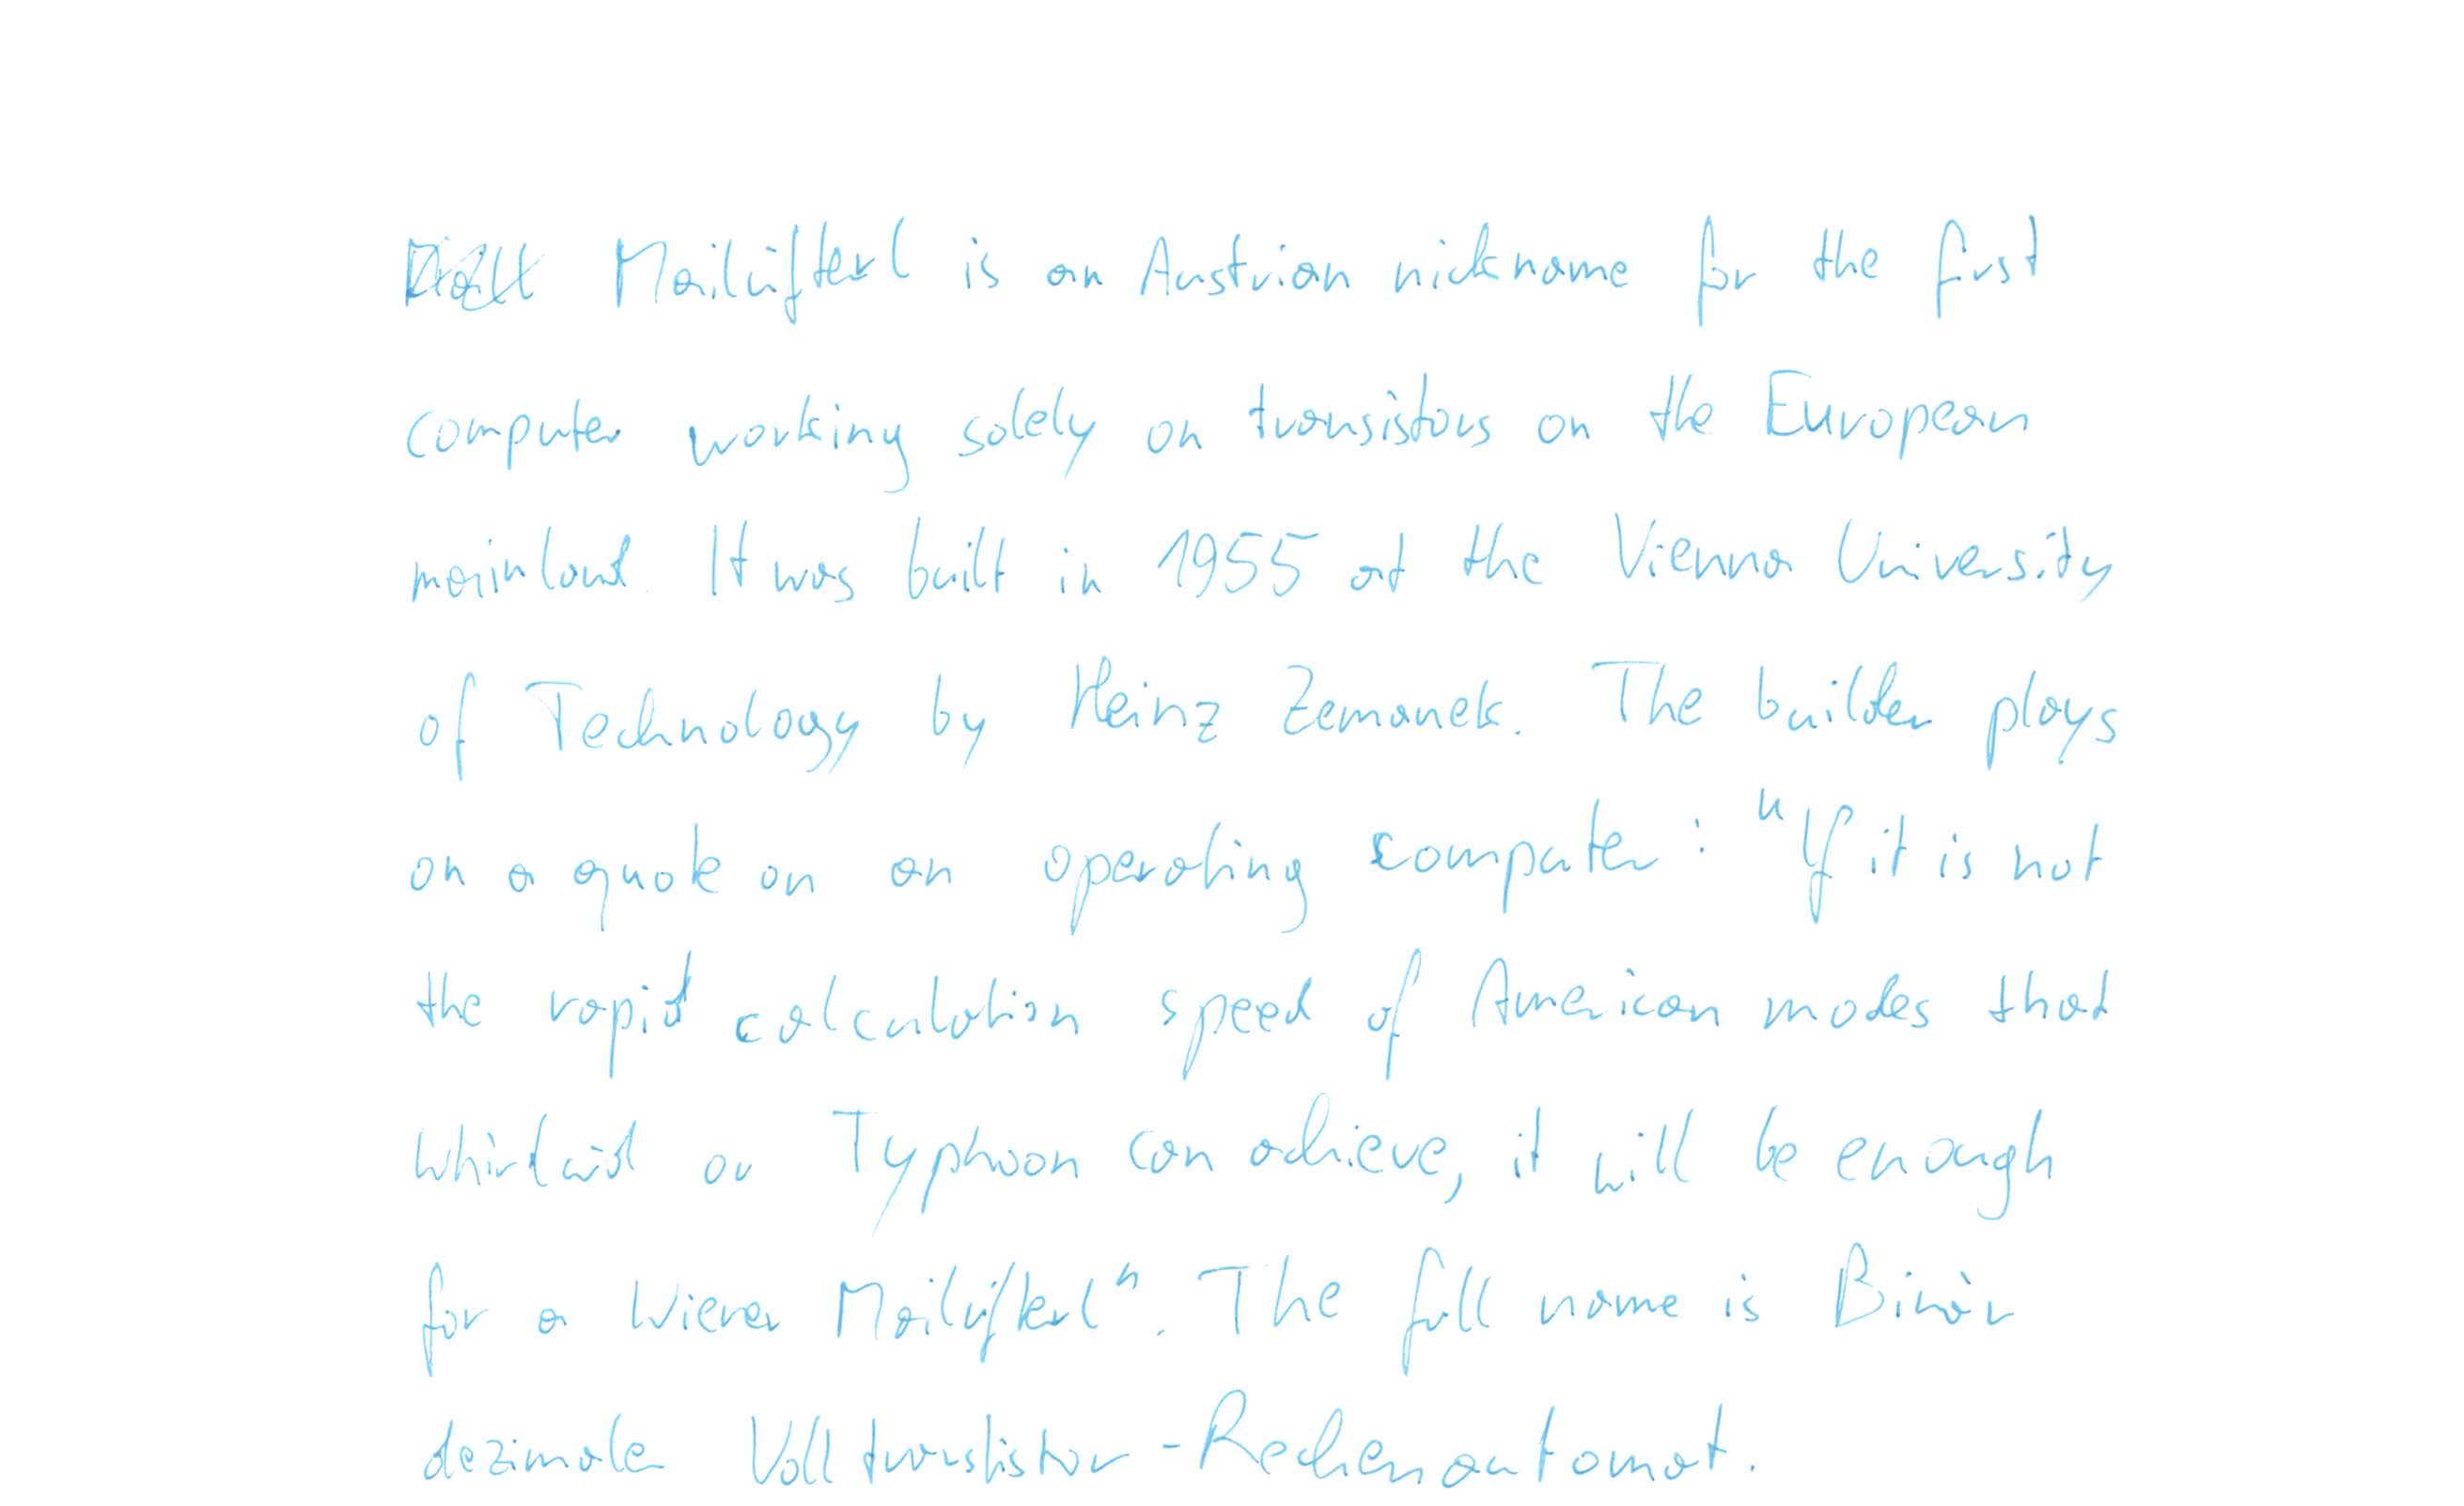 Mailüfterl is an Austrian nickname for the first
computer working solely on transistors on the European
mainland. It was built in 1955 at the Vienna University
of Technology by Heinz Zemanek. The builder plays
on a quote on an operating computer: "If it is not
the rapid calculation speed of American models that
Whirlwind or Typhoon can achieve, it will be enough
for a Wiener Mailüfterl". The full name is Binär
dezimaler Volltransistor-Rechenautomat.